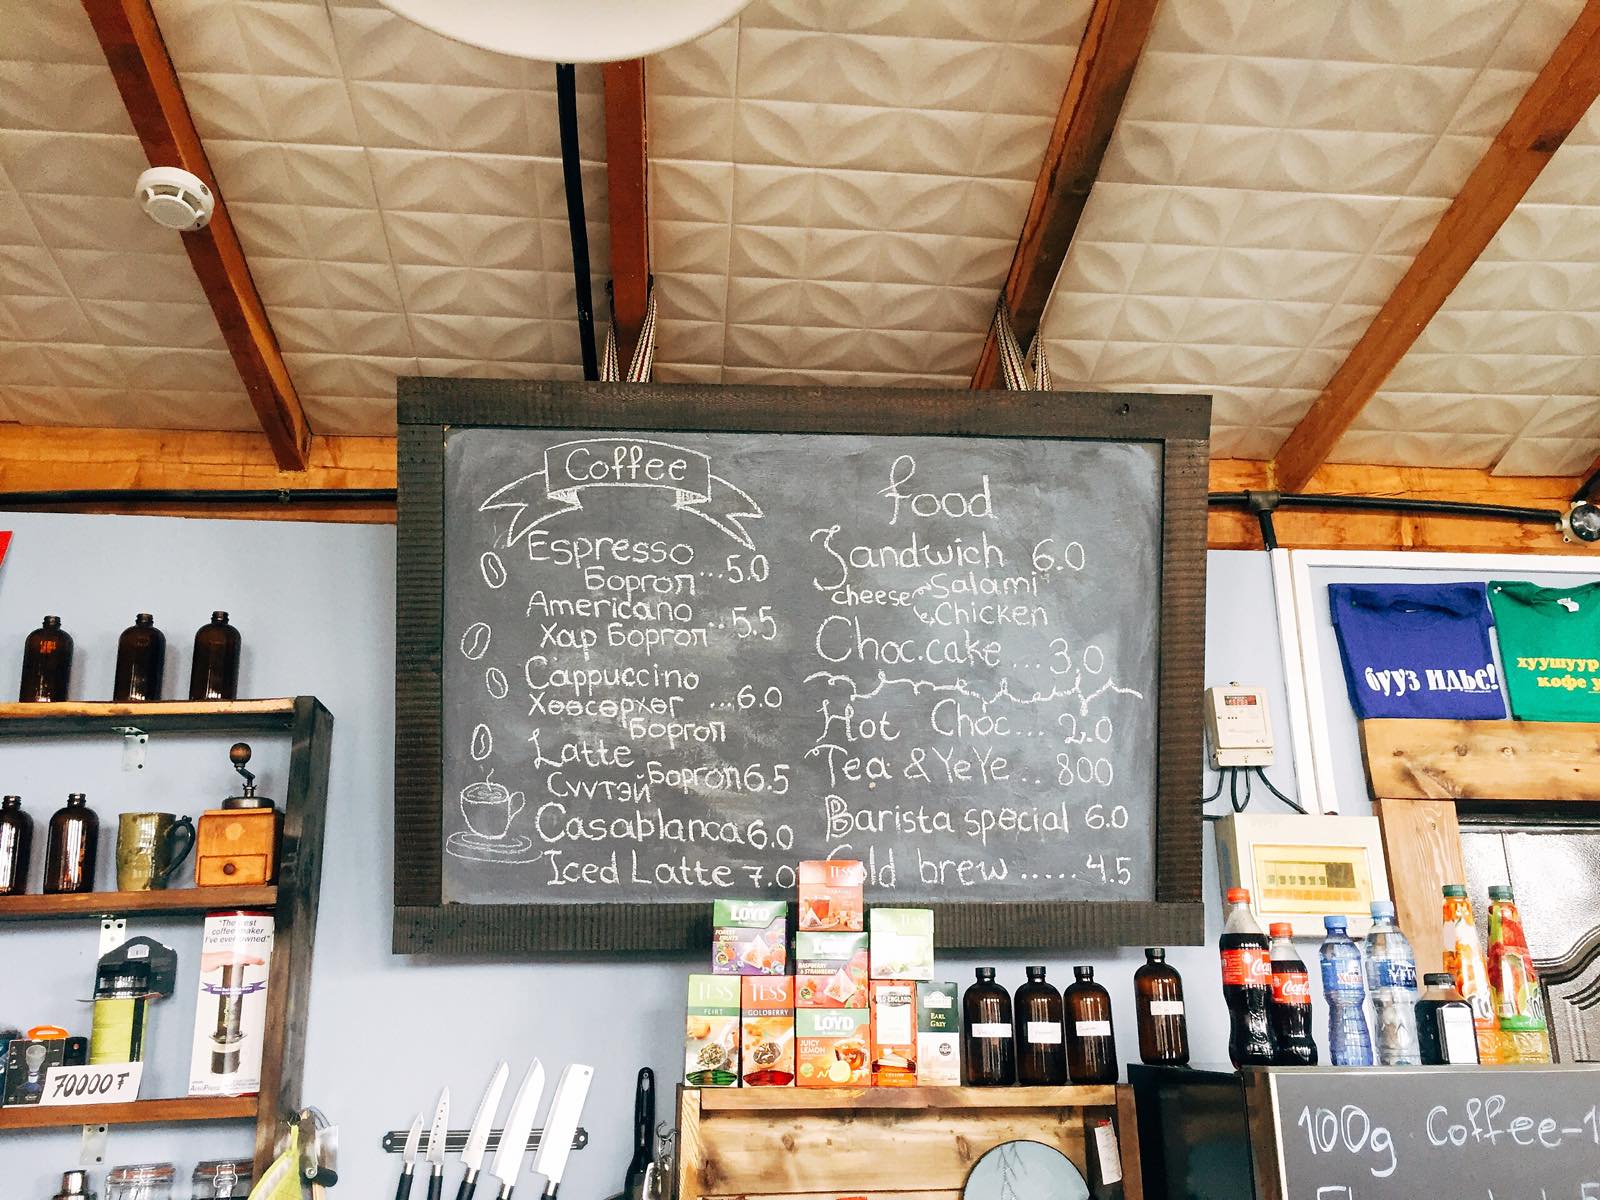 Coffee
Espresso
Боргоп ...5.0
Americano
Хар Боргоп ..5.5
Cappuccino
Хөөсөрхөг ...6.0
Боргоп
Latte
Сүүтэй Боргоп 6.5
Casablanca 6.0
Iced Latte 7.0
food
Sandwich 6.0
cheese Salami
Chicken
Choc.cake ... 3.0
Hot Choc... 2.0
Tea & YeYe .. 800
Barista special 6.0
brew ..... 4.5
бууз идье!
хуушуур
кофе
"The best
coffee maker
I've ever owned."
70000₮
TESS
LOYD
FOREST
FRUITS
LOYD
RASPBERRY
& STRAWBERRY
TESS
TESS
FLIRT
TESS
GOLDBERRY
LOYD
JUICY
LEMON
OLD ENGLAND
EARL
GREY
Coca-Cola
Coca-Cola
100g Coffee-1